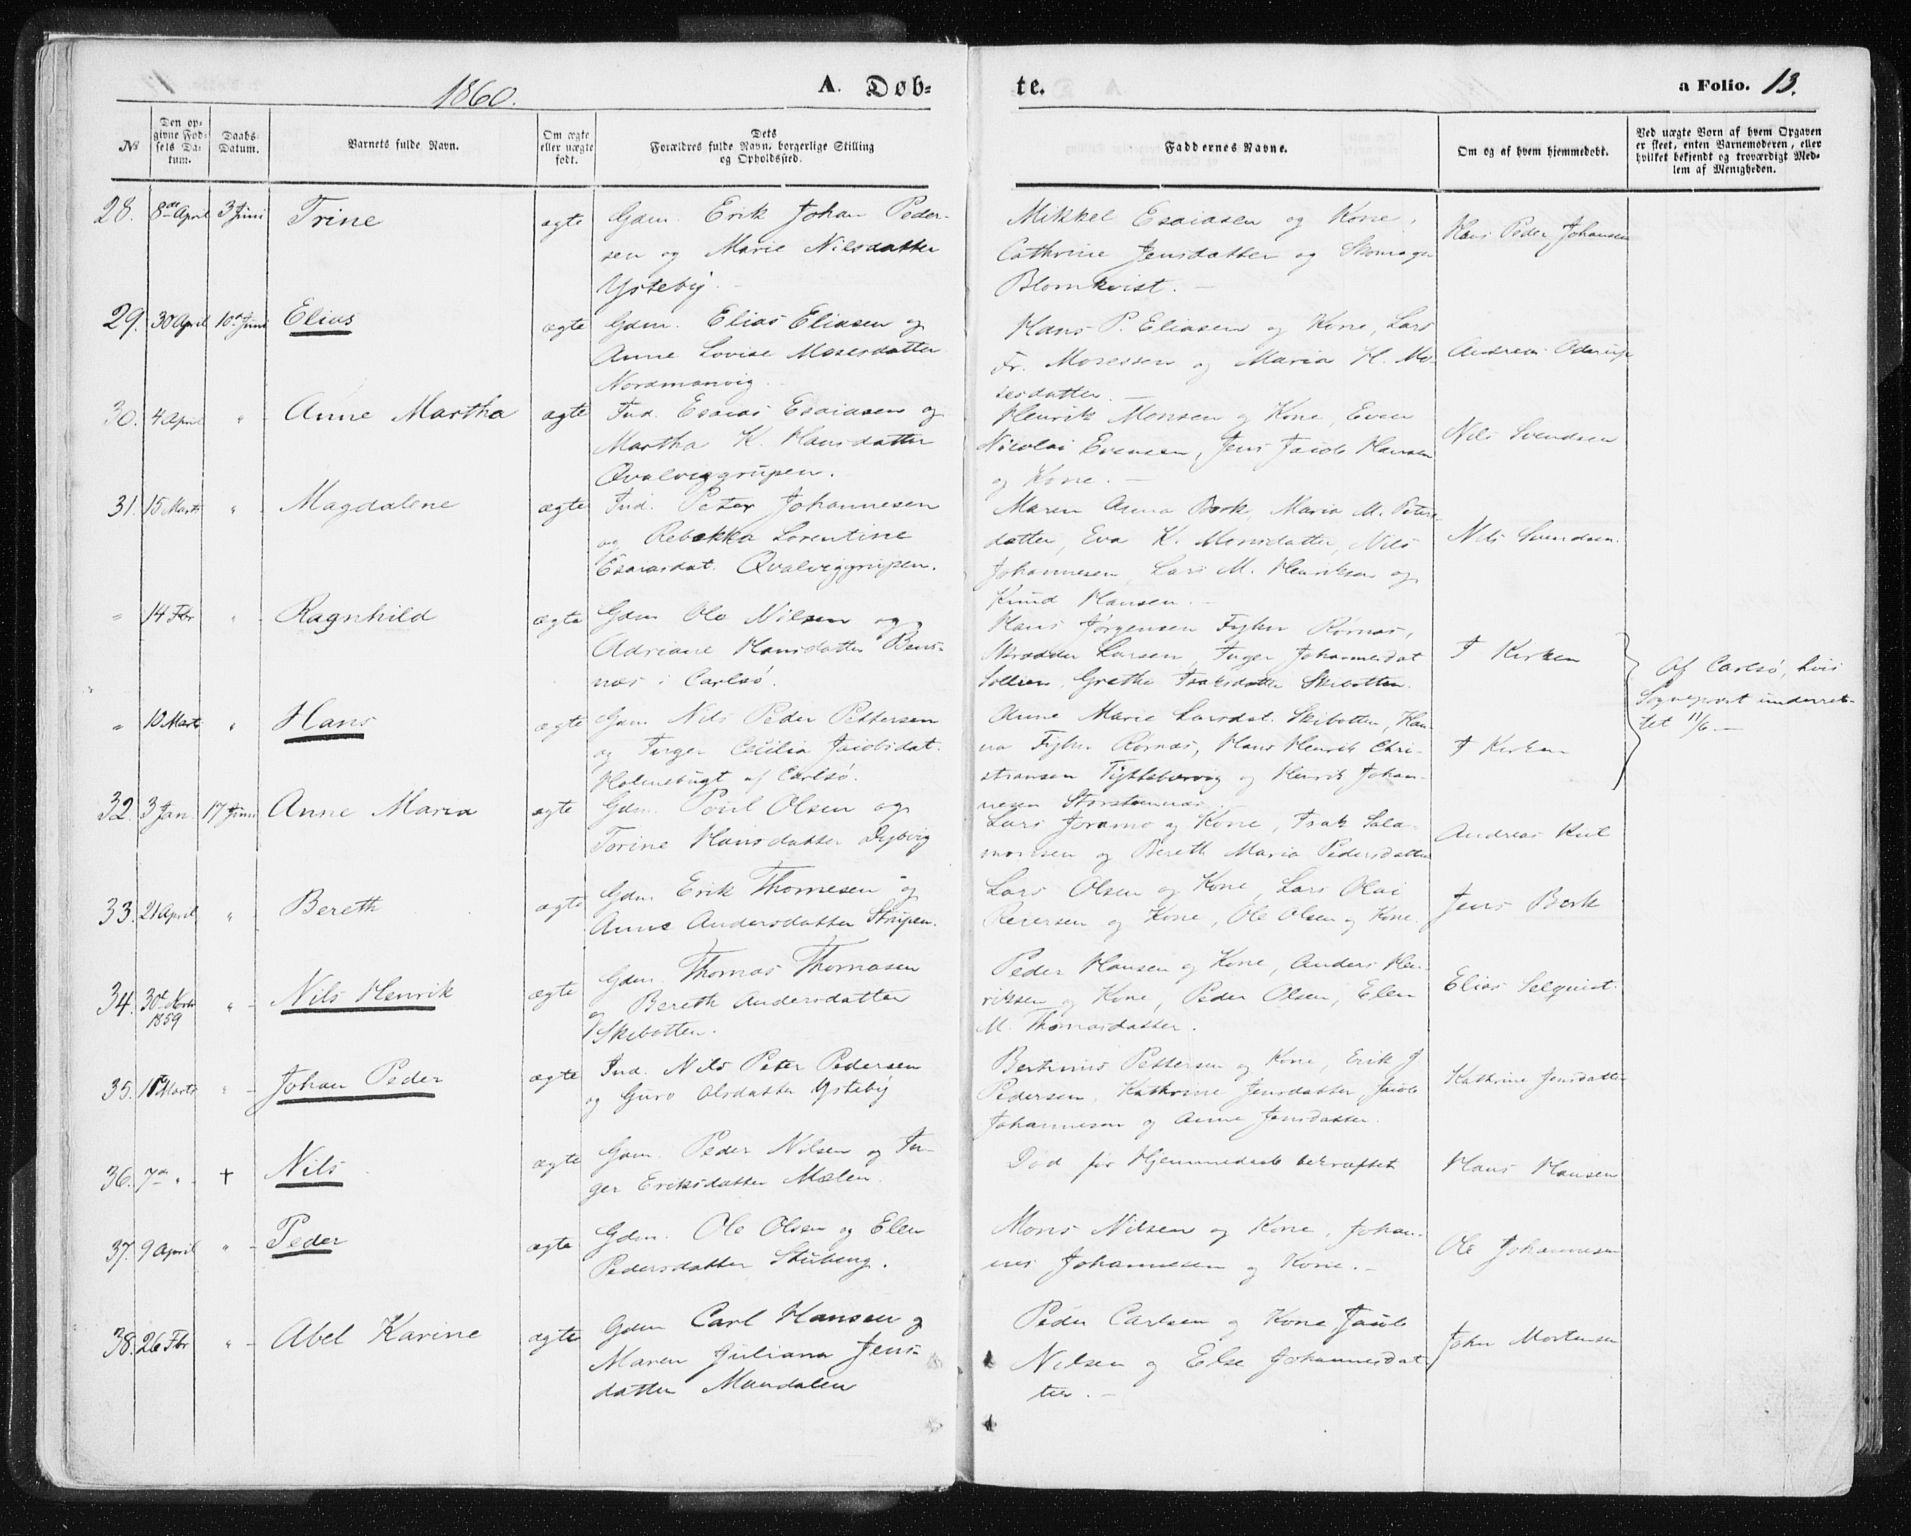 1860.
A. Døb-
te.
a Folio. 13.
No
Den op-
givne Fød-
sels Da-
tum.
Daabs-
Datum.
Barnets fulde Navn.
Om ægte
eller uægte
født.
Dets
Forældres fulde Navn, borgerlige Stilling
og Opholdssted.
Faddernes Navne.
Om og af hvem hjemmedøbt.
Ved uægte Børn af hvem Opgaven
er skeet, enten Barnemoderen, eller
hvilket bekjendt og troværdigt Med-
lem af Menigheden.
28. 8de April 3 Juni Trine ægte
Gdm. Erik Johan Peder-
sen og Marie Nilsdatter
Ysteby. -
Mikkel Esaiasen og Kone,
Cathrine Jensdatter og Skomager
Blomkvist. -
Hans Peder Johansen
29. 30 April 10de Juni Elias ægte
Gdm. Elias Eliasen og
Anne Lovise Mosesdatter
Nordmanvig.
Hans P. Eliasen og Kone, Lars
Fr. Mosessen og Maria H. Mo-
sesdatter. -
Andreas
30. 4 April " Anne Martha ægte
Ind. Esaias Esaiasen og
Martha K. Hansdatter
Qvalviggrupen.
Henrik Monsen og Kone, Even
Nicolai Evensen, Jens Jacob Hansen
og Kone. -
Nils Svendsen
31. 15 Marts " Magdalene ægte
Ind. Peter Johannesen
og Rebekka Lorentine
Esaiasdat. Qvalviggrupen.
Maren Anna Bork, Maria M. Peters
datter, Eva K. Monsdatter, Nils
Johannesen, Lars M. Henriksen og
Knud Hansen. -
Nils Svendsen.
" 14 Fbr " Ragnhild ægte
Gdm Ole Nilsen og
Adriane Hansdatter Bens-
næs i Carlsø.
Hans Jørgensen Fyhn Rørnæs,
Larsen, Inger Johannesdat
Grethe Isaksdatter Skibotten.
I Kirken
Af Carlsø, hvis
Sognepræst underret-
tet 11/6 -
" 10 Marts " Hans ægte
Gdm. Nils Peder Pettersen
og Inger Cecilia Jacobsdat.
Holmebugt af Carlsø.
Anne Marie Larsdat. Skibotten, Han-
na Fyhn Rørnæs, Hans Henrik Chri-
stiansen og Henrik Johan-
nesen Storsteennæs.
I Kirken
32. 3 Jan. 17 Juni Anne Maria ægte
Gdm. Poul Olsen og
Torine Hansdatter Dybvig
Lars Joramo og Kone, Isak Sala-
monsen og Bereth Maria Pedersdatter
Andreas Kiil
33. 21 April " Bereth ægte
Gdm. Erik Thomesen og
Anne Andersdatter Strupen.
Lars Olsen og Kone, Lars Olai
Reiersen og Kone, Ole Olsen og Kone.
Jens Bork
34. 30te Novbr
1859 " Nils Henrik ægte
Gdm. Thomas Thomasen
og Bereth Andersdatter
Skibotten.
Peder Hansen og Kone, Anders Hen-
riksen og Kone, Peder Olsen, Elen
M. Thomasdatter.
Elias Selqvist.
35. Marts " Johan Peder ægte
Ind. Nils Peter Pedersen
og Guro Olsdatter Ysteby
Bertinius Pettersen og Kone, Erik J
Pedersen, Kathrine Jensdatter, Jacob
Johannesen og Anne Jensdatter.
Kathrine Jensdatter
36. 7de " † Nils ægte
Gdm. Peder Nilsen og In-
ger Eriksdatter Mælen.
Død før Hjemmedaab bekræftet
Hans Hansen
37. 9 April " Peder ægte
Gdm. Ole Olsen og Elen
Pedersdatter Stubeng.
Mons Nilsen og Kone, Johan-
nes Johannesen og Kone. -
Ole Johannesen
38. 26 Fbr " Abel Karine ægte
Gdm Carl Hansen og
Maren Juliana Jens-
datter Mandalen
Peder Carlsen og Kone, Jacob
Nilsen og Else Johannesdat-
ter. -
John Mortensen